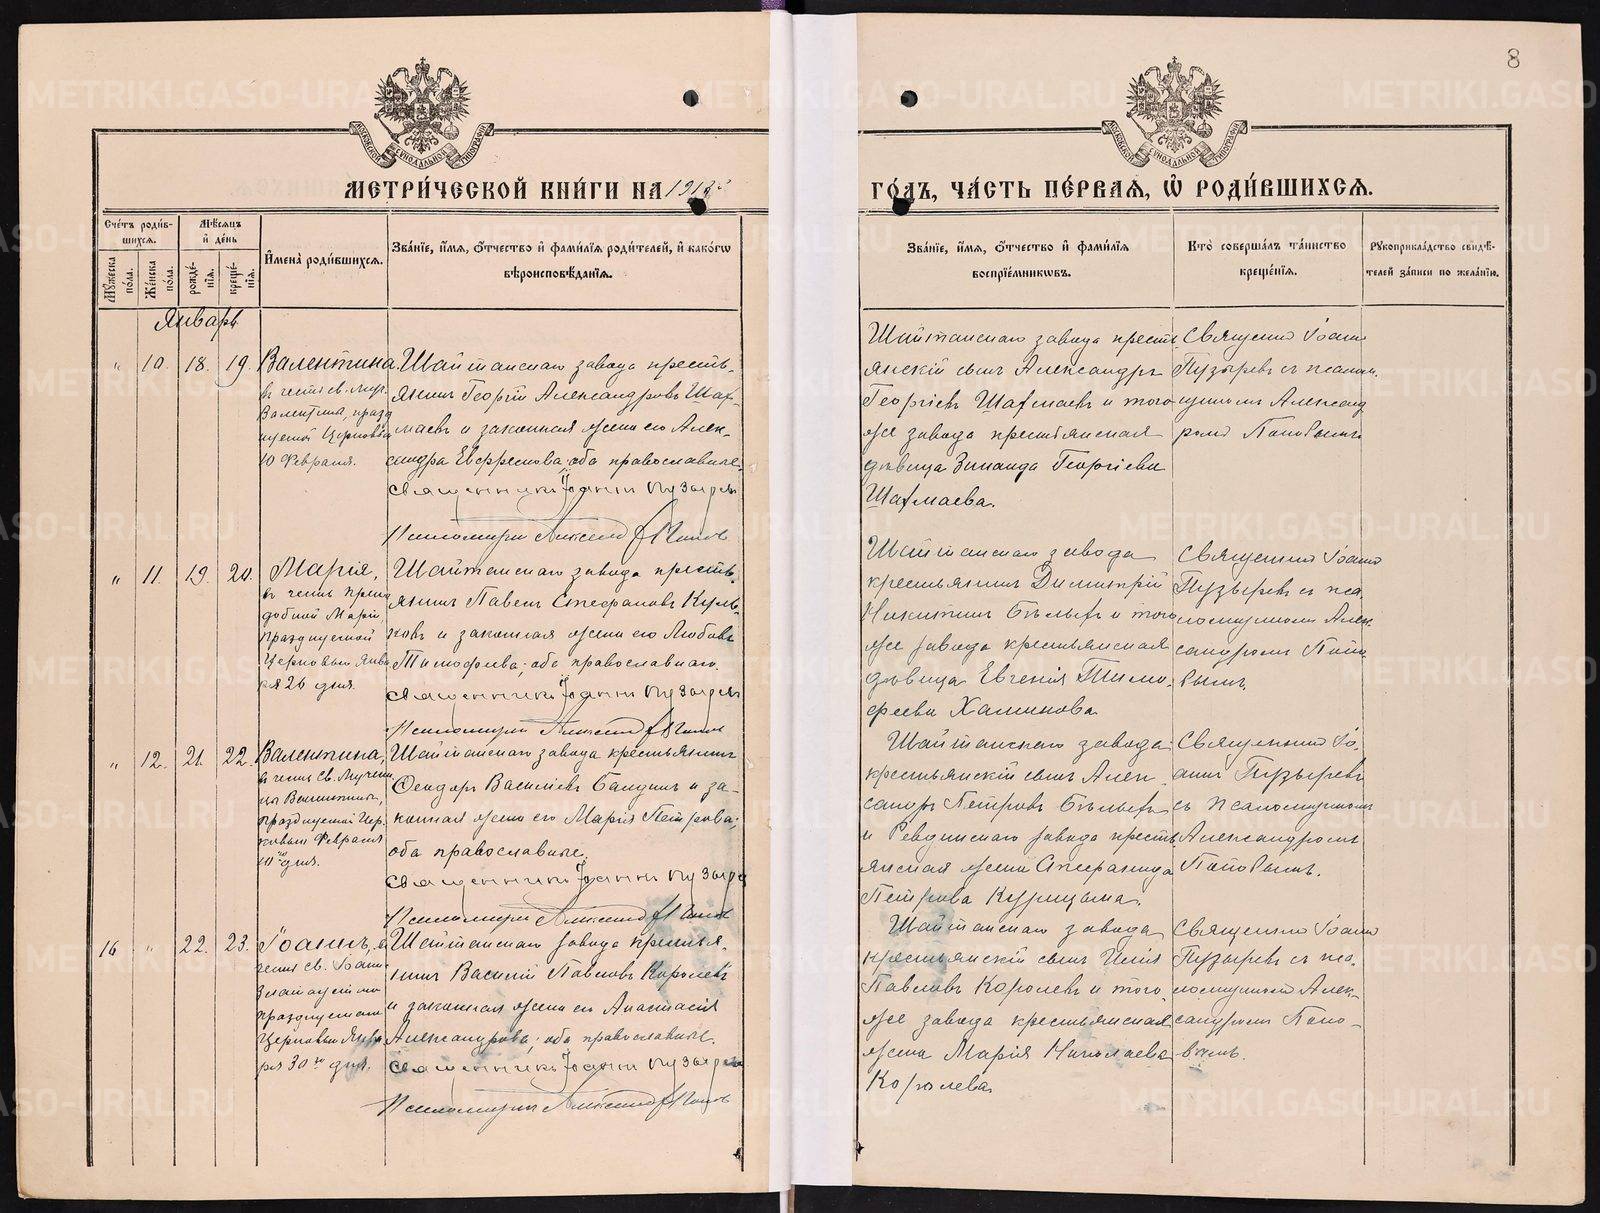 8
МОСКОВСКОЙ СѴНОДАЛЬНОЙ ТИПОГРАФІИ
МОСКОВСКОЙ СѴНОДАЛЬНОЙ ТИПОГРАФІИ
МЕТРИ́ЧЕСКОЙ КНИ́ГИ НА
ГО́ДЪ, ЧА́СТЬ ПЕ́РВАЯ, Ѡ҆ РОДИ́ВШИХСЯ.
Сче́тъ роди́в-
шихся.
Мѣ́сяцъ
и҆ де́нь
Му́жеска
по́ла.
Же́нска
по́ла.
рожде́-
нїя.
креще́-
нїя.
И҆мена̀ роди́вшихся.
Зва́нїе, и҆́мя, ѻ҆́тчество и҆ фами́лїя роди́телей, и҆ како́гѡ
вѣроисповѣ́данїя.
Зва́нїе, и҆́мя, ѻ҆́тчество и҆ фами́лїя
воспрїе́мникѡвъ.
Кто̀ соверша́лъ та́инство
креще́нїя.
Рꙋкоприкла́дство свидѣ́-
телей за́писи по жела́нїю.
Январь
" 10. 18. 19.
Валентина
въ честь св. муч.
Валентина, празд
нуемой Церковью
10 Февраля.
Шайтанскаго завода кресть-
янинъ Георгій Александровъ Шах-
маевъ и законная жена его Алек-
сандра Евфремова; оба православные.
Священникъ Іоаннъ Пузыревъ
Псаломщикъ Александръ Поповъ
Шайтанскаго завода кресть-
янскій сынъ Александръ
Георгіевъ Шахмаевъ и того
же завода крестьянская
дѣвица Зинаида Георгіева
Шахмаева.
Священникъ Іоаннъ
Пузыревъ съ псалом-
щикомъ Александ
ромъ Поповымъ
" 11. 19. 20.
Марія,
въ честь препо
добной Маріи,
празднуемой
Церковью Янва
ря 26 дня.
Шайтанскаго завода кресть-
янинъ Павелъ Стефановъ Куль-
ковъ и законная жена его Любовь
Тимофеева; оба православнаго.
Священникъ Іоаннъ Пузыревъ
Псаломщикъ Александръ Поповъ
Шайтанскаго завода
крестьянинъ Димитрій
Никитинъ Бѣлыхъ и того
же завода крестьянская
дѣвица Евгенія Тимо-
феева Халикова.
Священникъ Іоаннъ
Пузыревъ съ пса-
ломщикомъ Алек-
сандромъ Попо-
вымъ.
" 12. 21. 22.
Валентина,
въ честь св. мучени
цы Валентины,
празднуемой Цер-
ковью Февраля
10го дня.
Шайтанскаго завода крестьянинъ
Феодоръ Василіевъ Балдинъ и за-
конная жена его Марія Петрова;
оба православные.
Священникъ Іоаннъ Пузыревъ
Псаломщикъ Александръ Поповъ
Шайтанскаго завода
крестьянскій сынъ Алек-
сандръ Петровъ Бѣлыхъ
и Ревдинскаго завода кресть
янская жена Стефанида
Петрова Курицына.
Священникъ Іо-
аннъ Пузыревъ
съ псаломщикомъ
Александромъ
Поповымъ.
16 " 22. 23.
Іоаннъ, въ
честь св. Іоанна
Златоустаго
празднуемаго
Церковью Янва
ря 30го дня.
Шайтанскаго завода крестья-
нинъ Василій Павловъ Королевъ
и законная жена его Анастасія
Александрова; оба православные.
Священникъ Іоаннъ Пузыревъ
Псаломщикъ Александръ Поповъ
Шайтанскаго завода
крестьянскій сынъ Илія
Павловъ Королевъ и того
же завода крестьянская
жена Марія Николаева
Королева
Священникъ Іоаннъ
Пузыревъ съ пса-
ломщикомъ Алек-
сандромъ Попо-
вымъ.
METRIKI.GASO-URAL.RU